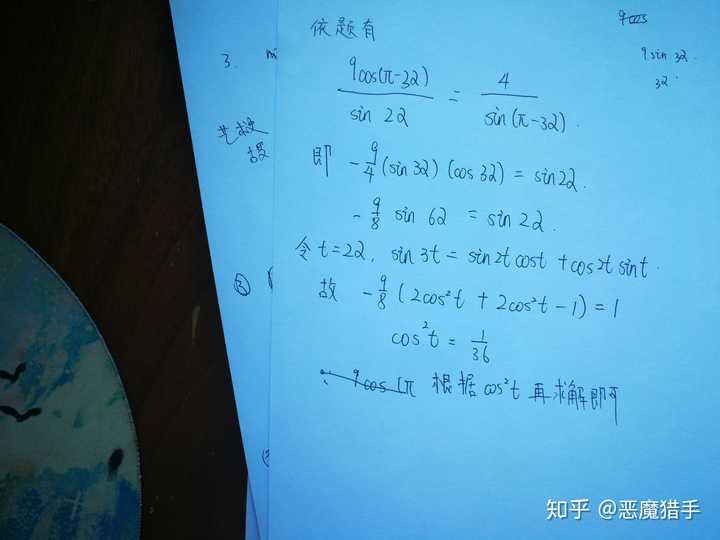 依题有
9cos(π-3α) / sin 2α = 4 / sin(π-3α).
即 -9/4 (sin 3α) (cos 3α) = sin 2α.
-9/8 sin 6α = sin 2α.
令 t=2α, sin 3t = sin 2t cost + cos 2t sint.
故 -9/8 ( 2cos²t + 2cos²t - 1 ) = 1
cos²t = 1/36
根据 cos²t 再求解即可
9cos
9 sin 3α.
3α.
3.
②
知乎 @恶魔猎手